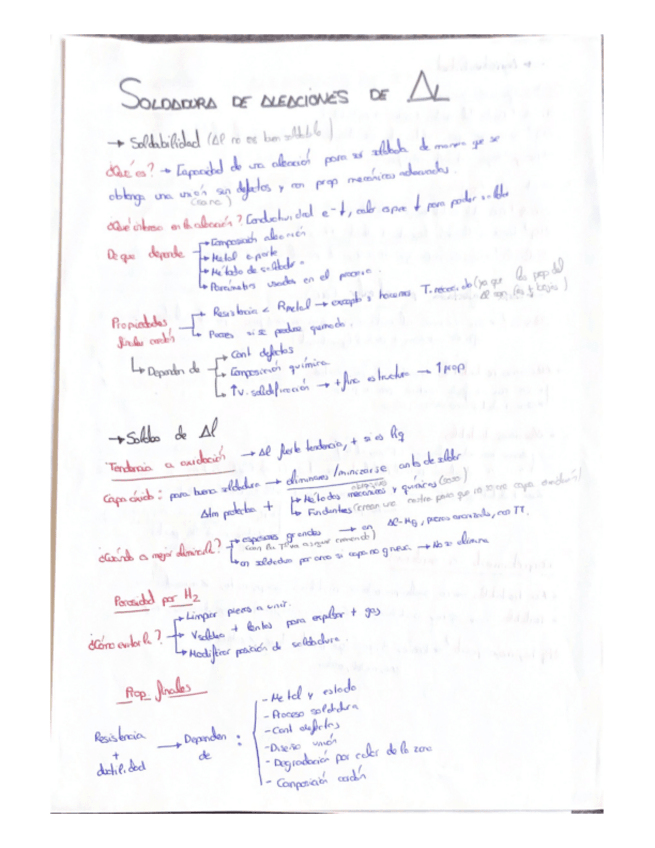 SOLDADURA DE ALEACIONES DE AL
→ Soldabilidad (Al no es buen soldable)
¿Qué es? → Capacidad de una aleación para ser soldada de manera que se
obtenga una unión sin defectos y con prop mecánicas adecuadas.
(sana)
¿Qué interesa en la aleación? Conductividad e- ↓, calor espec ↓ para poder soldar
De que depende
→ Composición aleación
→ Metal aporte
→ Método de soldadura
→ Parámetros usados en el proceso.
Propiedades finales cordón
→ Resistencia < Rmetal → excepto si hacemos T. (ya que las prop del
Al son bajas)
→ Poros si se produce quemado.
↳ Dependen de
→ Cont defectos
→ Composición química
→ ↑v. solidificación → + fina estructura → ↑ prop
→ Soldeo de Al
Tendencia a oxidación → Al fuerte tendencia, + si es Mg
Capa óxido: para buena soldadura → eliminarse/minimizarse antes de soldar
Atm protectora +
→ Métodos mecánicos y químicos
→ Fundentes (crean una para que no se cree capa)
¿Cuándo es mejor eliminarla?
→ espesores grandes → en Al-Mg, piezas, no TT.
→ en soldadura por arco si capa no gruesa → No se elimina
Porosidad por H2
¿Cómo evitarla?
→ Limpiar piezas a unir.
→ Vsoldeo + lentas para expulsar + gas
→ Modificar posición de soldadura.
Prop finales
Resistencia + ductilidad → Dependen de :
- Metal y estado
- Proceso soldadura
- Cont defectos
- Diseño unión
- Degradación por calor de la zona
- Composición cordón